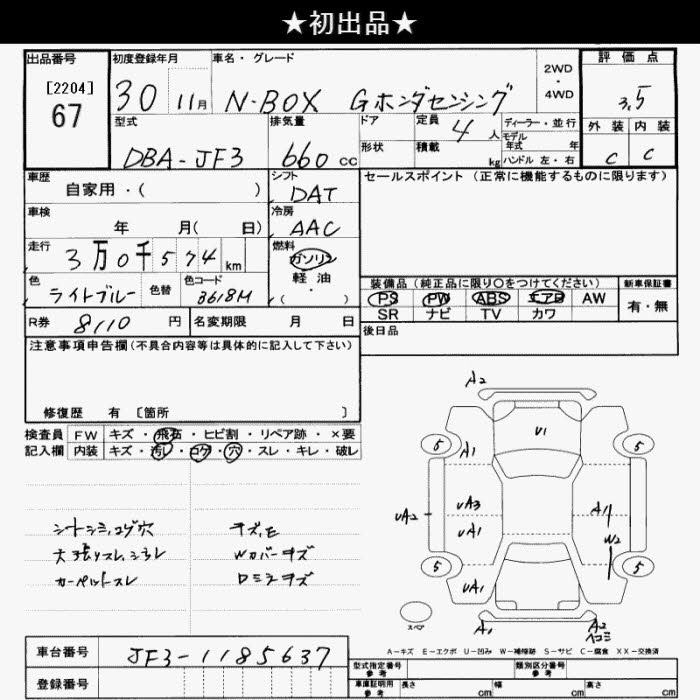 ★初出品★
出品番号
[2204]
67
初度登録年月
30 11月
車名・グレード
N-BOX Gホンダセンシング
2WD
・
4WD
評価点
3.5
外装 内装
C C
型式
DBA-JF3
排気量
660 cc
ドア
形状
定員
4 人
積載 kg
ディーラー・並行
モデル
年式 年
ハンドル 左・右
車歴
自家用・( )
シフト
DAT
セールスポイント (正常に機能するものに限ります)
車検
年 月( 日)
冷房
AAC
走行
3万0千574 km
燃料
ガソリン
軽油
・
( )
色
ライトブルー
色替
色コード
B618M
装備品 (純正品に限り○をつけてください)
PS PW ABS エアB AW
SR ナビ TV カワ
新車保証書
有・無
R券 8110 円
名変期限 月 日
後日品
注意事項申告欄(不具合内容等は具体的に記入して下さい)
修復歴 有 〔箇所 〕
検査員 FW キズ・飛石・ヒビ割・リペア跡・×要
記入欄 内装 キズ・汚レ・コゲ・穴・スレ・キレ・破レ
シートシミ,コゲ穴
天張リスレ,シミレ
カーペットスレ
キズ,E
Wカバーキズ
ロミラキズ
A2
U1
5
5
A1
UA2
UA3
UA1
A1
W2
5
5
UA1
スペア
A1
A2
ヘコミ
A-キズ E-エクボ U-凹み W-補修跡 S-サビ C-腐食 XX-交換済
車台番号 JF3-1185637
登録番号
型式指定番号
参考
類別区分番号
参考
車庫証明用
参考
長さ cm
幅 cm
高さ cm